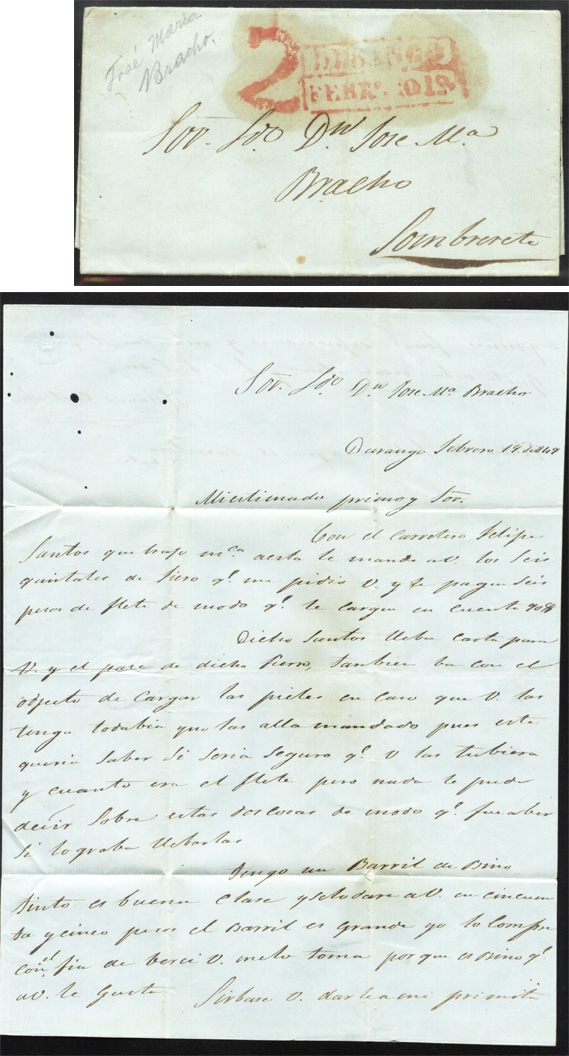 José Maria
Bracho.
2
DURANGO
FEBR.
Sor. Ldo Dn Jose Ma
Bracho
Sombrerete
Sor. Ldo Dn Jose Ma Bracho
Durango Febrero 19 de
Mi estimado primo y Sor.
Con el Carretero Felipe
Santos que trajo a esta le mande a V. los Seis
quintales de fierro qe. me pidio V. y le pague Seis
pesos de flete de modo qe. le cargue en cuenta
Dicho Santos lleba carta para
V. y el pase de dicho fierro, tambien ba con el
objecto de Cargar las pieles en caso que V. las
tenga todabia que las alla mandado pues este
queria Saber Si Seria Seguro qe. V las tubiera
y cuanto era el flete pero nada le pude
decir Sobre estas dos cosas de modo qe. fue aber
Si lograba llebarlas
Tengo un Barril de Bino
tinto es buena Clase y selo dare a V. en cincuen
ta y cinco pesos el Barril es grande yo lo Compre
con fin de berci V. melo toma por que es Bino qe.
a V. le Gusta Sirbase V. darle a mi primita